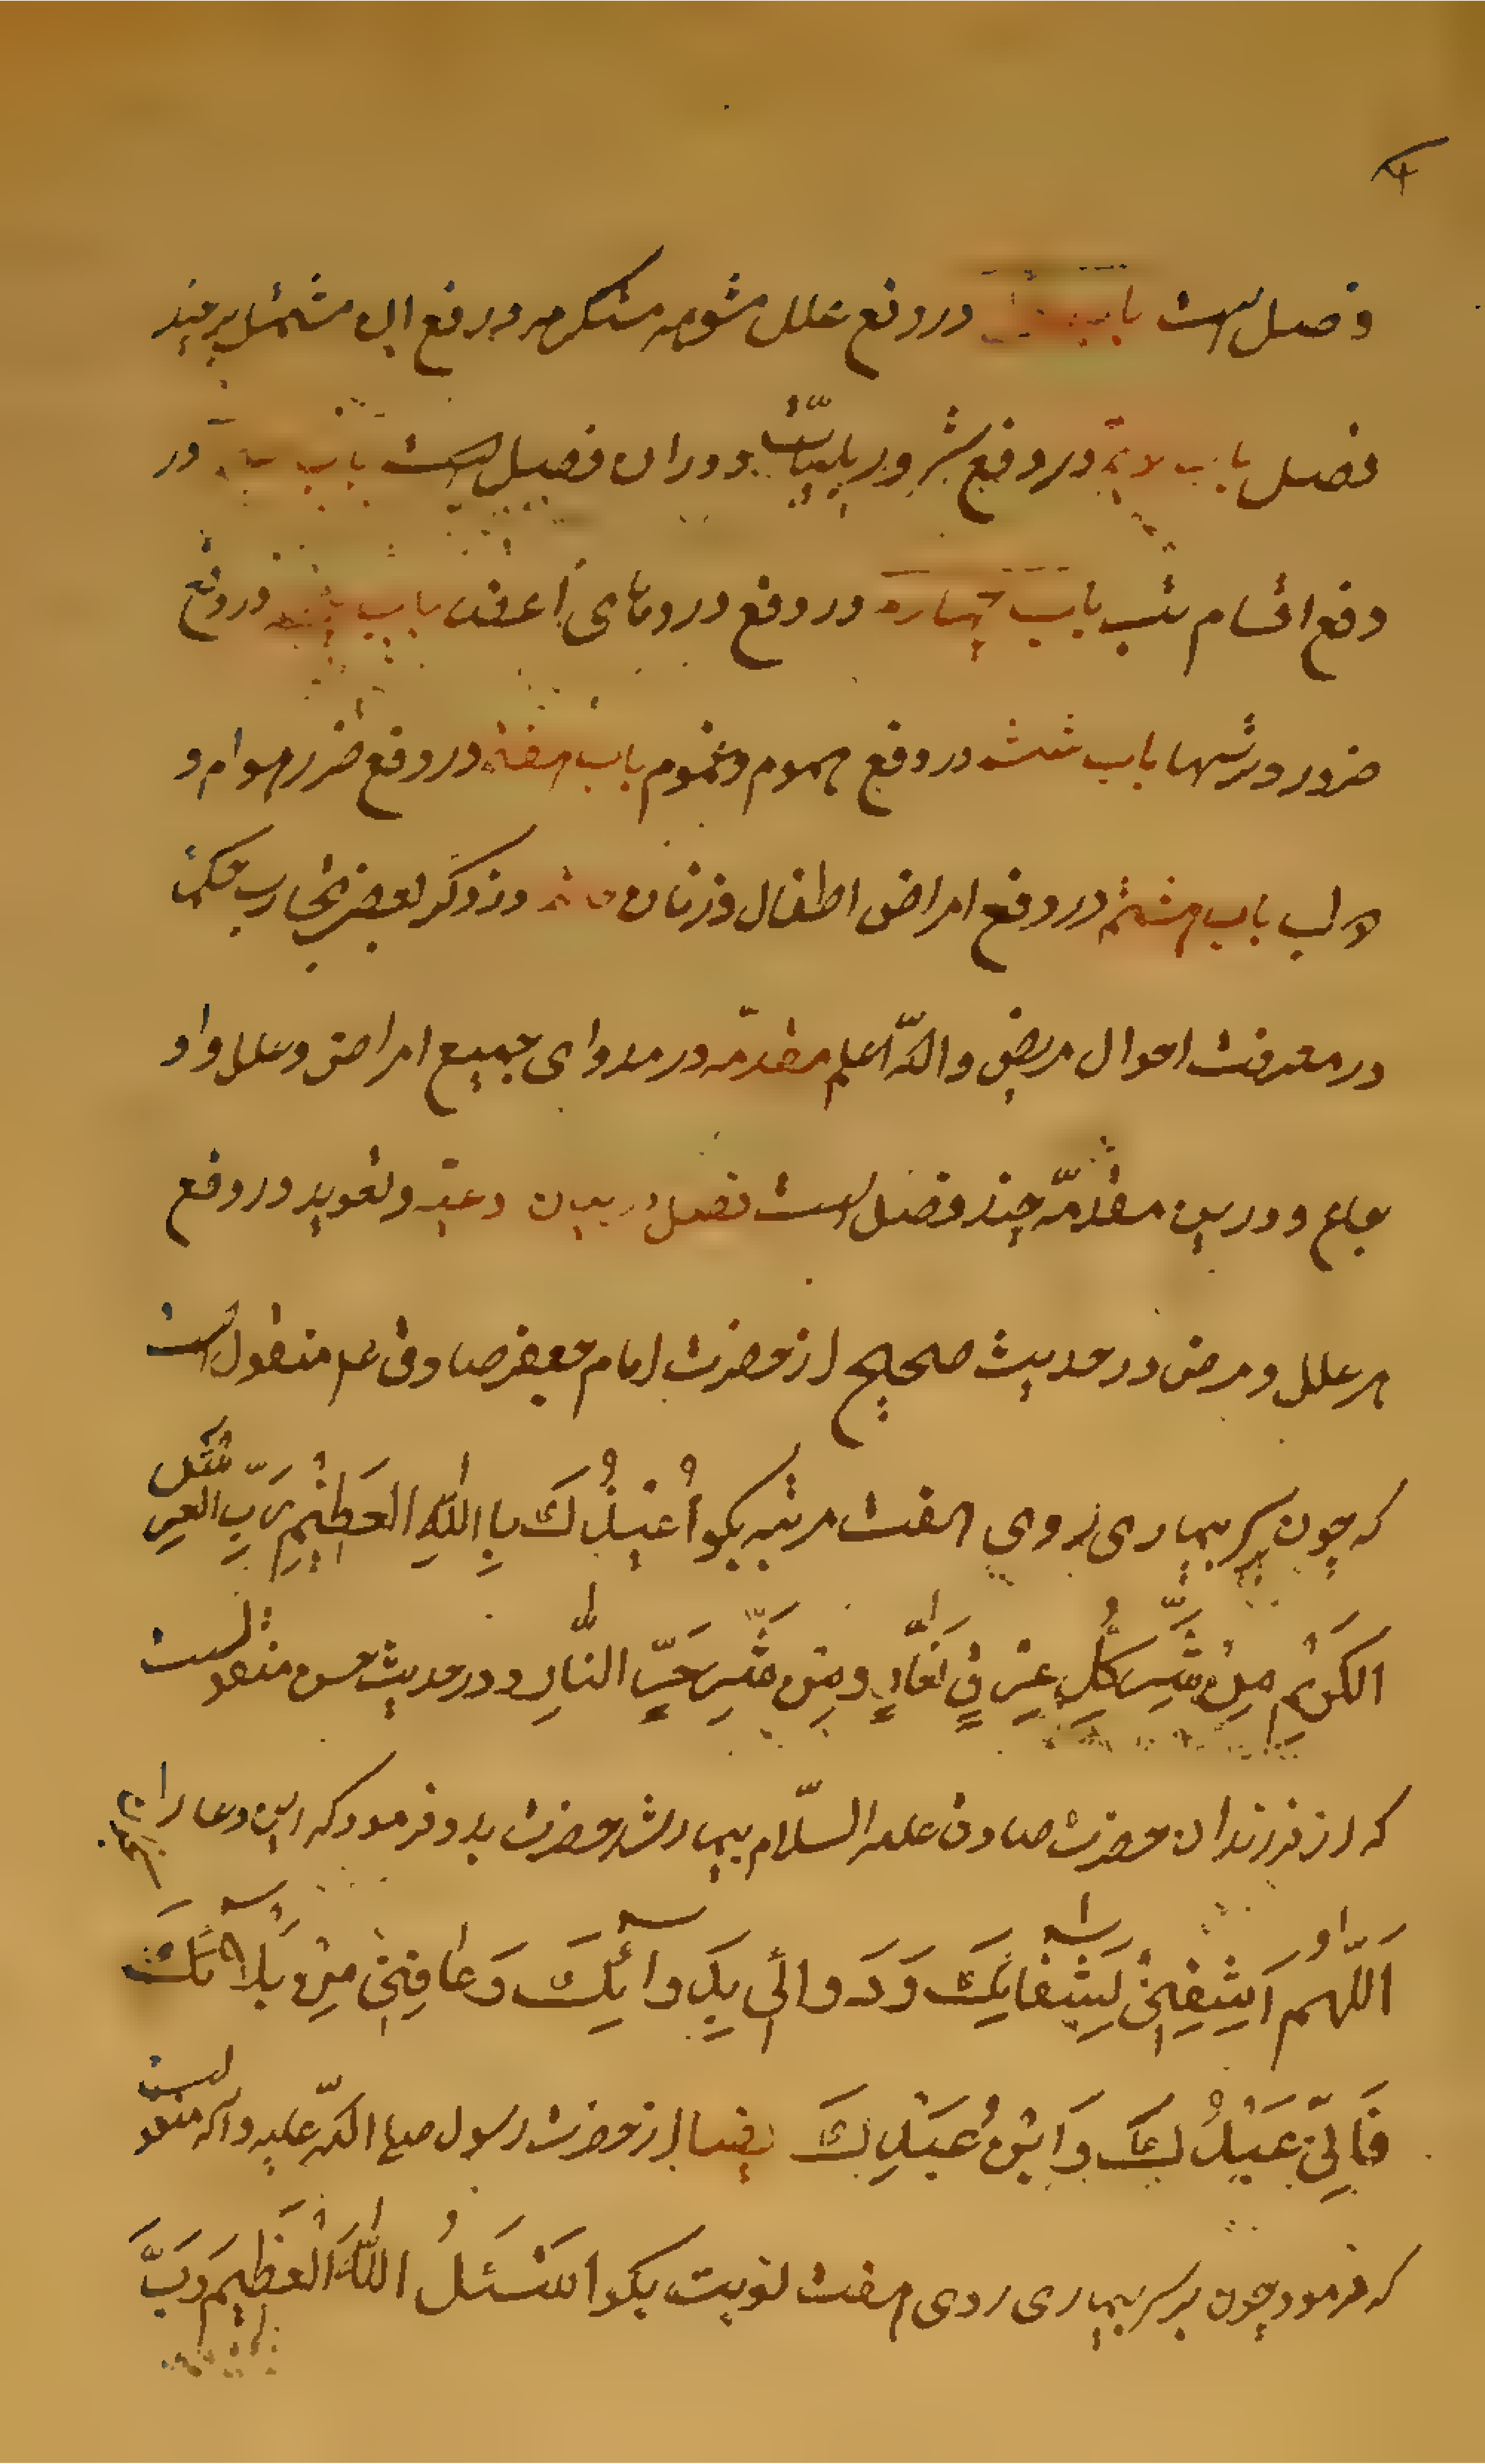 فصل است باب در دفع علل مشومه منکره و در دفع ان مشتمل بر چند
فصل باب در دفع شرور بلیات و دران فصل است باب در
دفع اقسام تب باب چهارم در دفع دردهای اعضا باب پنجم در دفع
ضرور و ترسها باب ششم در دفع هموم و غموم باب هفتم در دفع ضرر هوام و
باب هشتم در دفع امراض اطفال و زنان در ذکر بعضی تجارب حکما
در معرفت احوال مریض والله اعلم مقدمه در مداوای جمیع امراض و علل و او
جاع و درین مقدمه چند فصل است فصل در بیان ادعیه و تعوید در دفع
هر علل و مرض در حدیث صحیح از حضرت امام جعفر صادق عم منقول است
که چون بر سر بیماری روی هفت مرتبه بکو اُعیذُكَ بِاللّٰهِ العَظیمِ رَبِّ العرش
الکریمِ مِن شَرِّ کُلِّ عِرقٍ نَعّارٍ و مِن شَرِّ حَرِّ النّارِ و در حدیث حسن منقولست
که از فرزندان حضرت صادق علیه السّلام بیمار شد حضرت بدو فرمود که این دعا را
اَللّهم اَشفِنی بِشِفائِكَ وَ دَوائی بِدَوائِكَ وَ عافِنی مِن بَلائِكَ
فَاِنّی عَبدُكَ وَابنُ عَبدِكَ ایضا از حضرت رسول صلع الله علیه و اله منقولست
که فرمود چون بر سر بیماری روی هفت نوبت بکو اَسئَلُ اللّٰهَ العَظیمَ رَبَّ